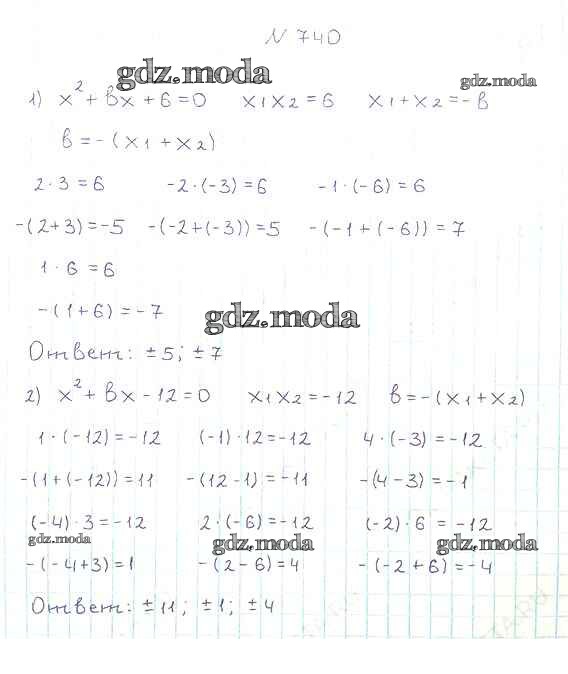 N 740
gdz.moda
gdz.moda
1) x² + вx + 6 = 0 x₁x₂ = 6 x₁ + x₂ = - в
в = - (x₁ + x₂)
2 · 3 = 6 -2 · (-3) = 6 -1 · (-6) = 6
-(2+3) = -5 -(-2+(-3)) = 5 -(-1+(-6)) = 7
1 · 6 = 6
-(1+6) = -7
gdz.moda
Ответ: ±5; ±7
2) x² + вx - 12 = 0 x₁x₂ = -12 в = -(x₁ + x₂)
1 · (-12) = -12 (-1) · 12 = -12 4 · (-3) = -12
-(1+(-12)) = 11 -(12-1) = -11 -(4-3) = -1
(-4) · 3 = -12 2 · (-6) = -12 (-2) · 6 = -12
gdz.moda gdz.moda gdz.moda
-(-4+3) = 1 -(2-6) = 4 -(-2+6) = -4
Ответ: ±11; ±1; ±4